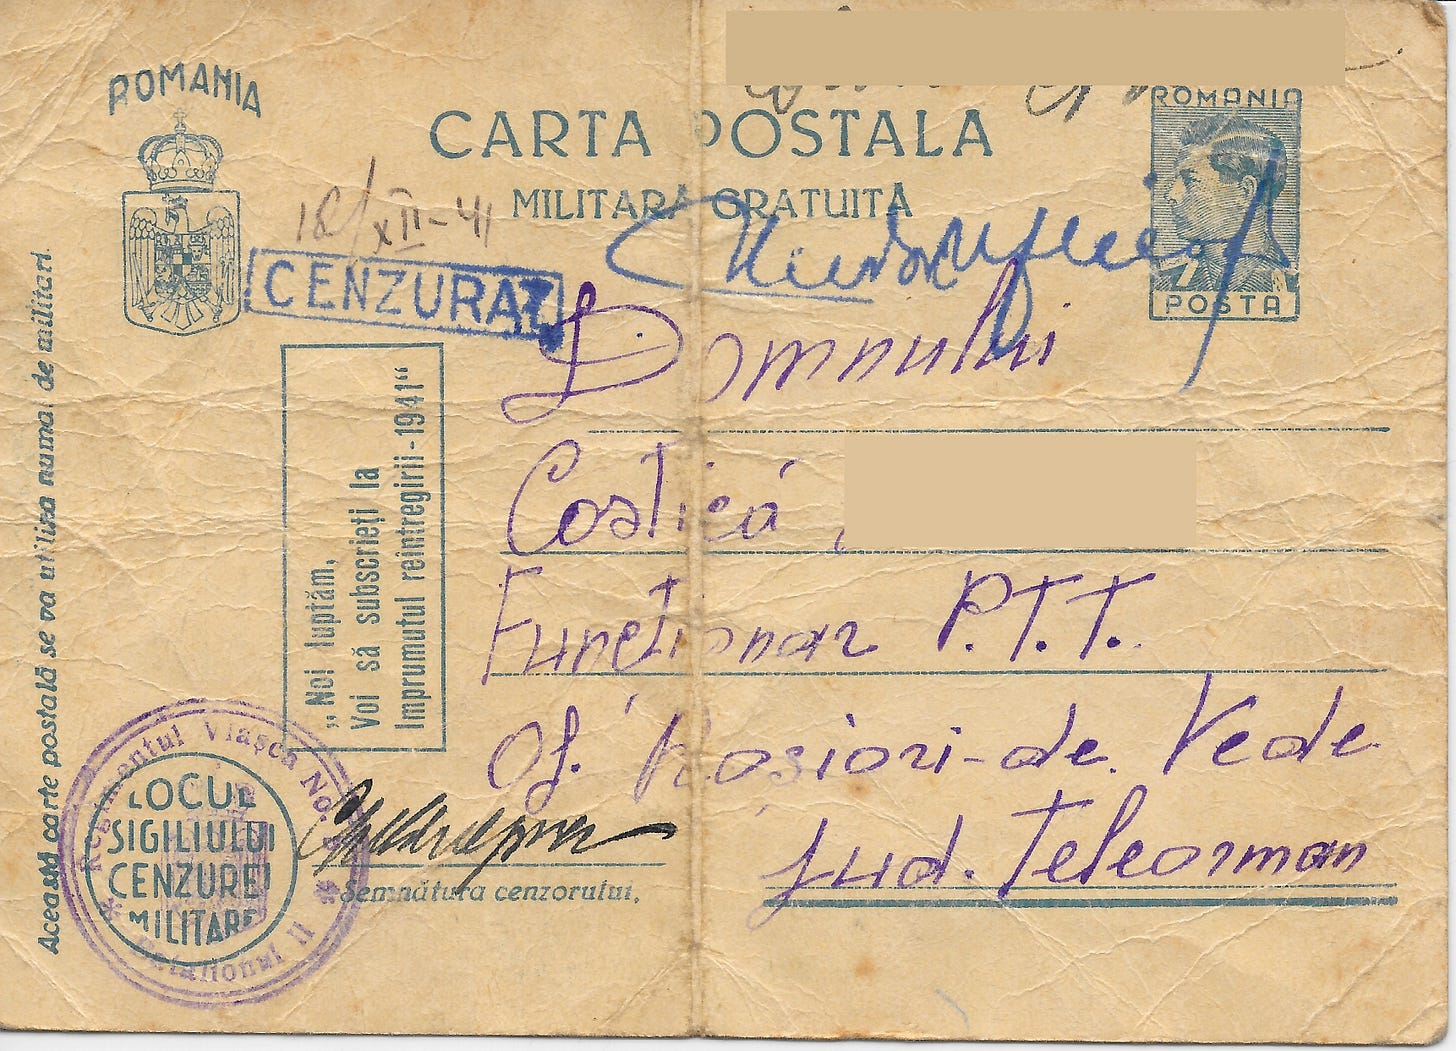 ROMANIA
CARTA POSTALA
MILITARA GRATUITA
ROMANIA
POSTA
18/XII-41
CENZURAT
Domnului
Costică
Funcționar P.T.T.
Of. Roșiori-de Vede
Jud. Teleorman
„Noi luptăm,
Voi să subscrieți la
Imprumutul reîntregirii-1941“
Această carte poștală se va utiliza numai de militari.
Regimentul Vlașca No.
Batalionul II
LOCUL
SIGILIULUI
CENZUREI
MILITARE
Semnătura cenzorului.